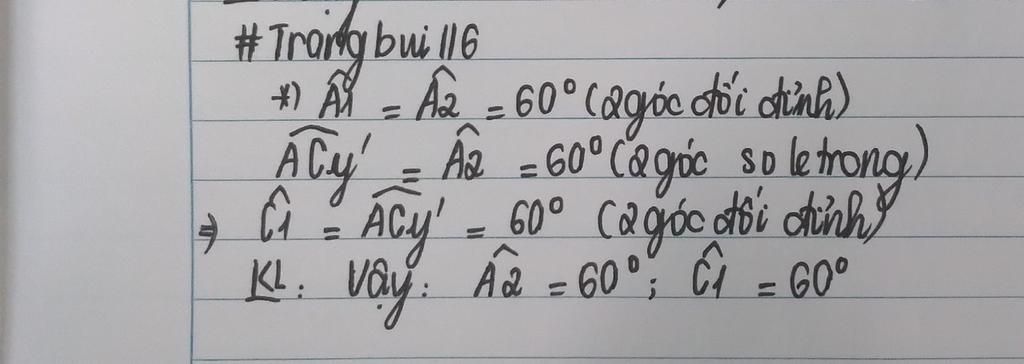 # Trangbui116
*) Â1 = Â2 = 60° (2 góc đối đỉnh)
ACy' = Â2 = 60° (2 góc so le trong)
⇒ Ĉ1 = ACy' = 60° (2 góc đối đỉnh)
KL: Vậy: Â2 = 60°; Ĉ1 = 60°